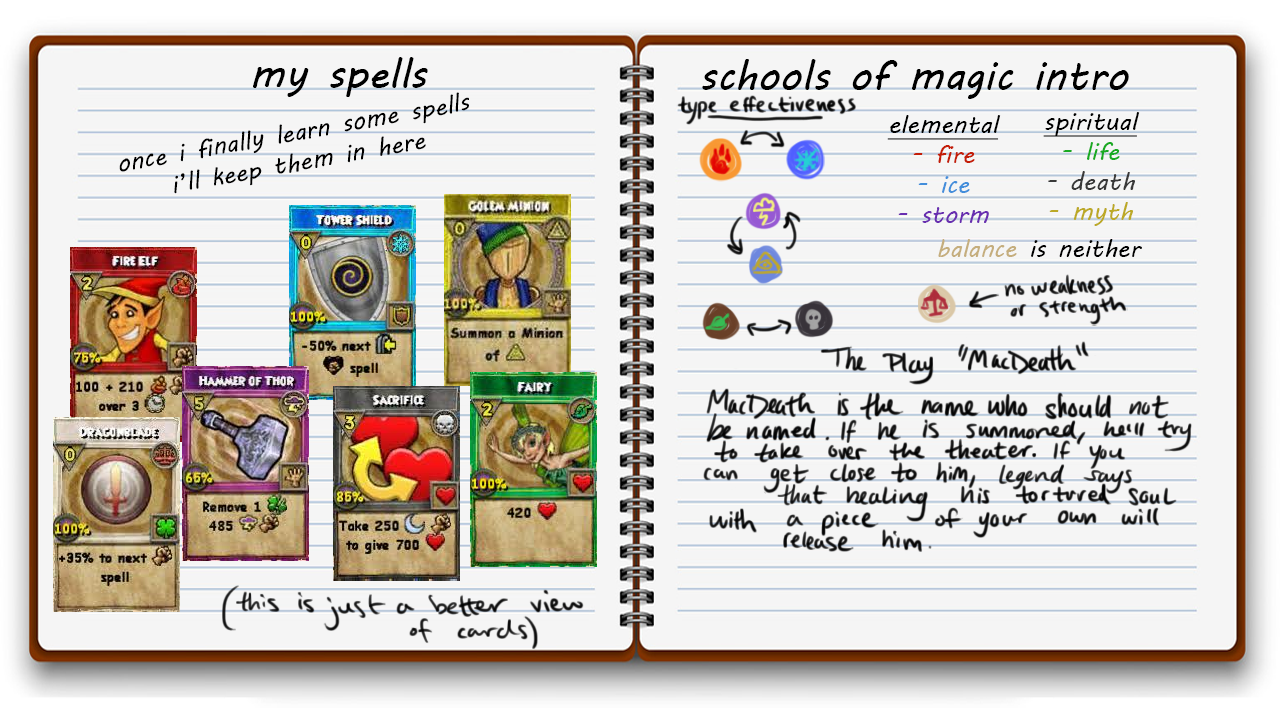 my spells
once i finally learn some spells
i'll keep them in here
TOWER SHIELD
0
100%
-50% next
spell
GOLEM MINION
0
100%
Summon a Minion
of
FIRE ELF
2
75%
100 + 210
over 3
HAMMER OF THOR
5
65%
Remove 1
485
SACRIFICE
3
85%
Take 250
to give 700
FAIRY
2
100%
420
DRAGONBLADE
0
100%
+35% to next
spell
(this is just a better view
of cards)
schools of magic intro
type effectiveness
elemental
- fire
- ice
- storm
spiritual
- life
- death
- myth
balance is neither
no weakness
or strength
The Play "MacDeath"
MacDeath is the name who should not
be named. If he is summoned, he'll try
to take over the theater. If you
can get close to him, legend says
that healing his tortured soul
with a piece of your own will
release him.